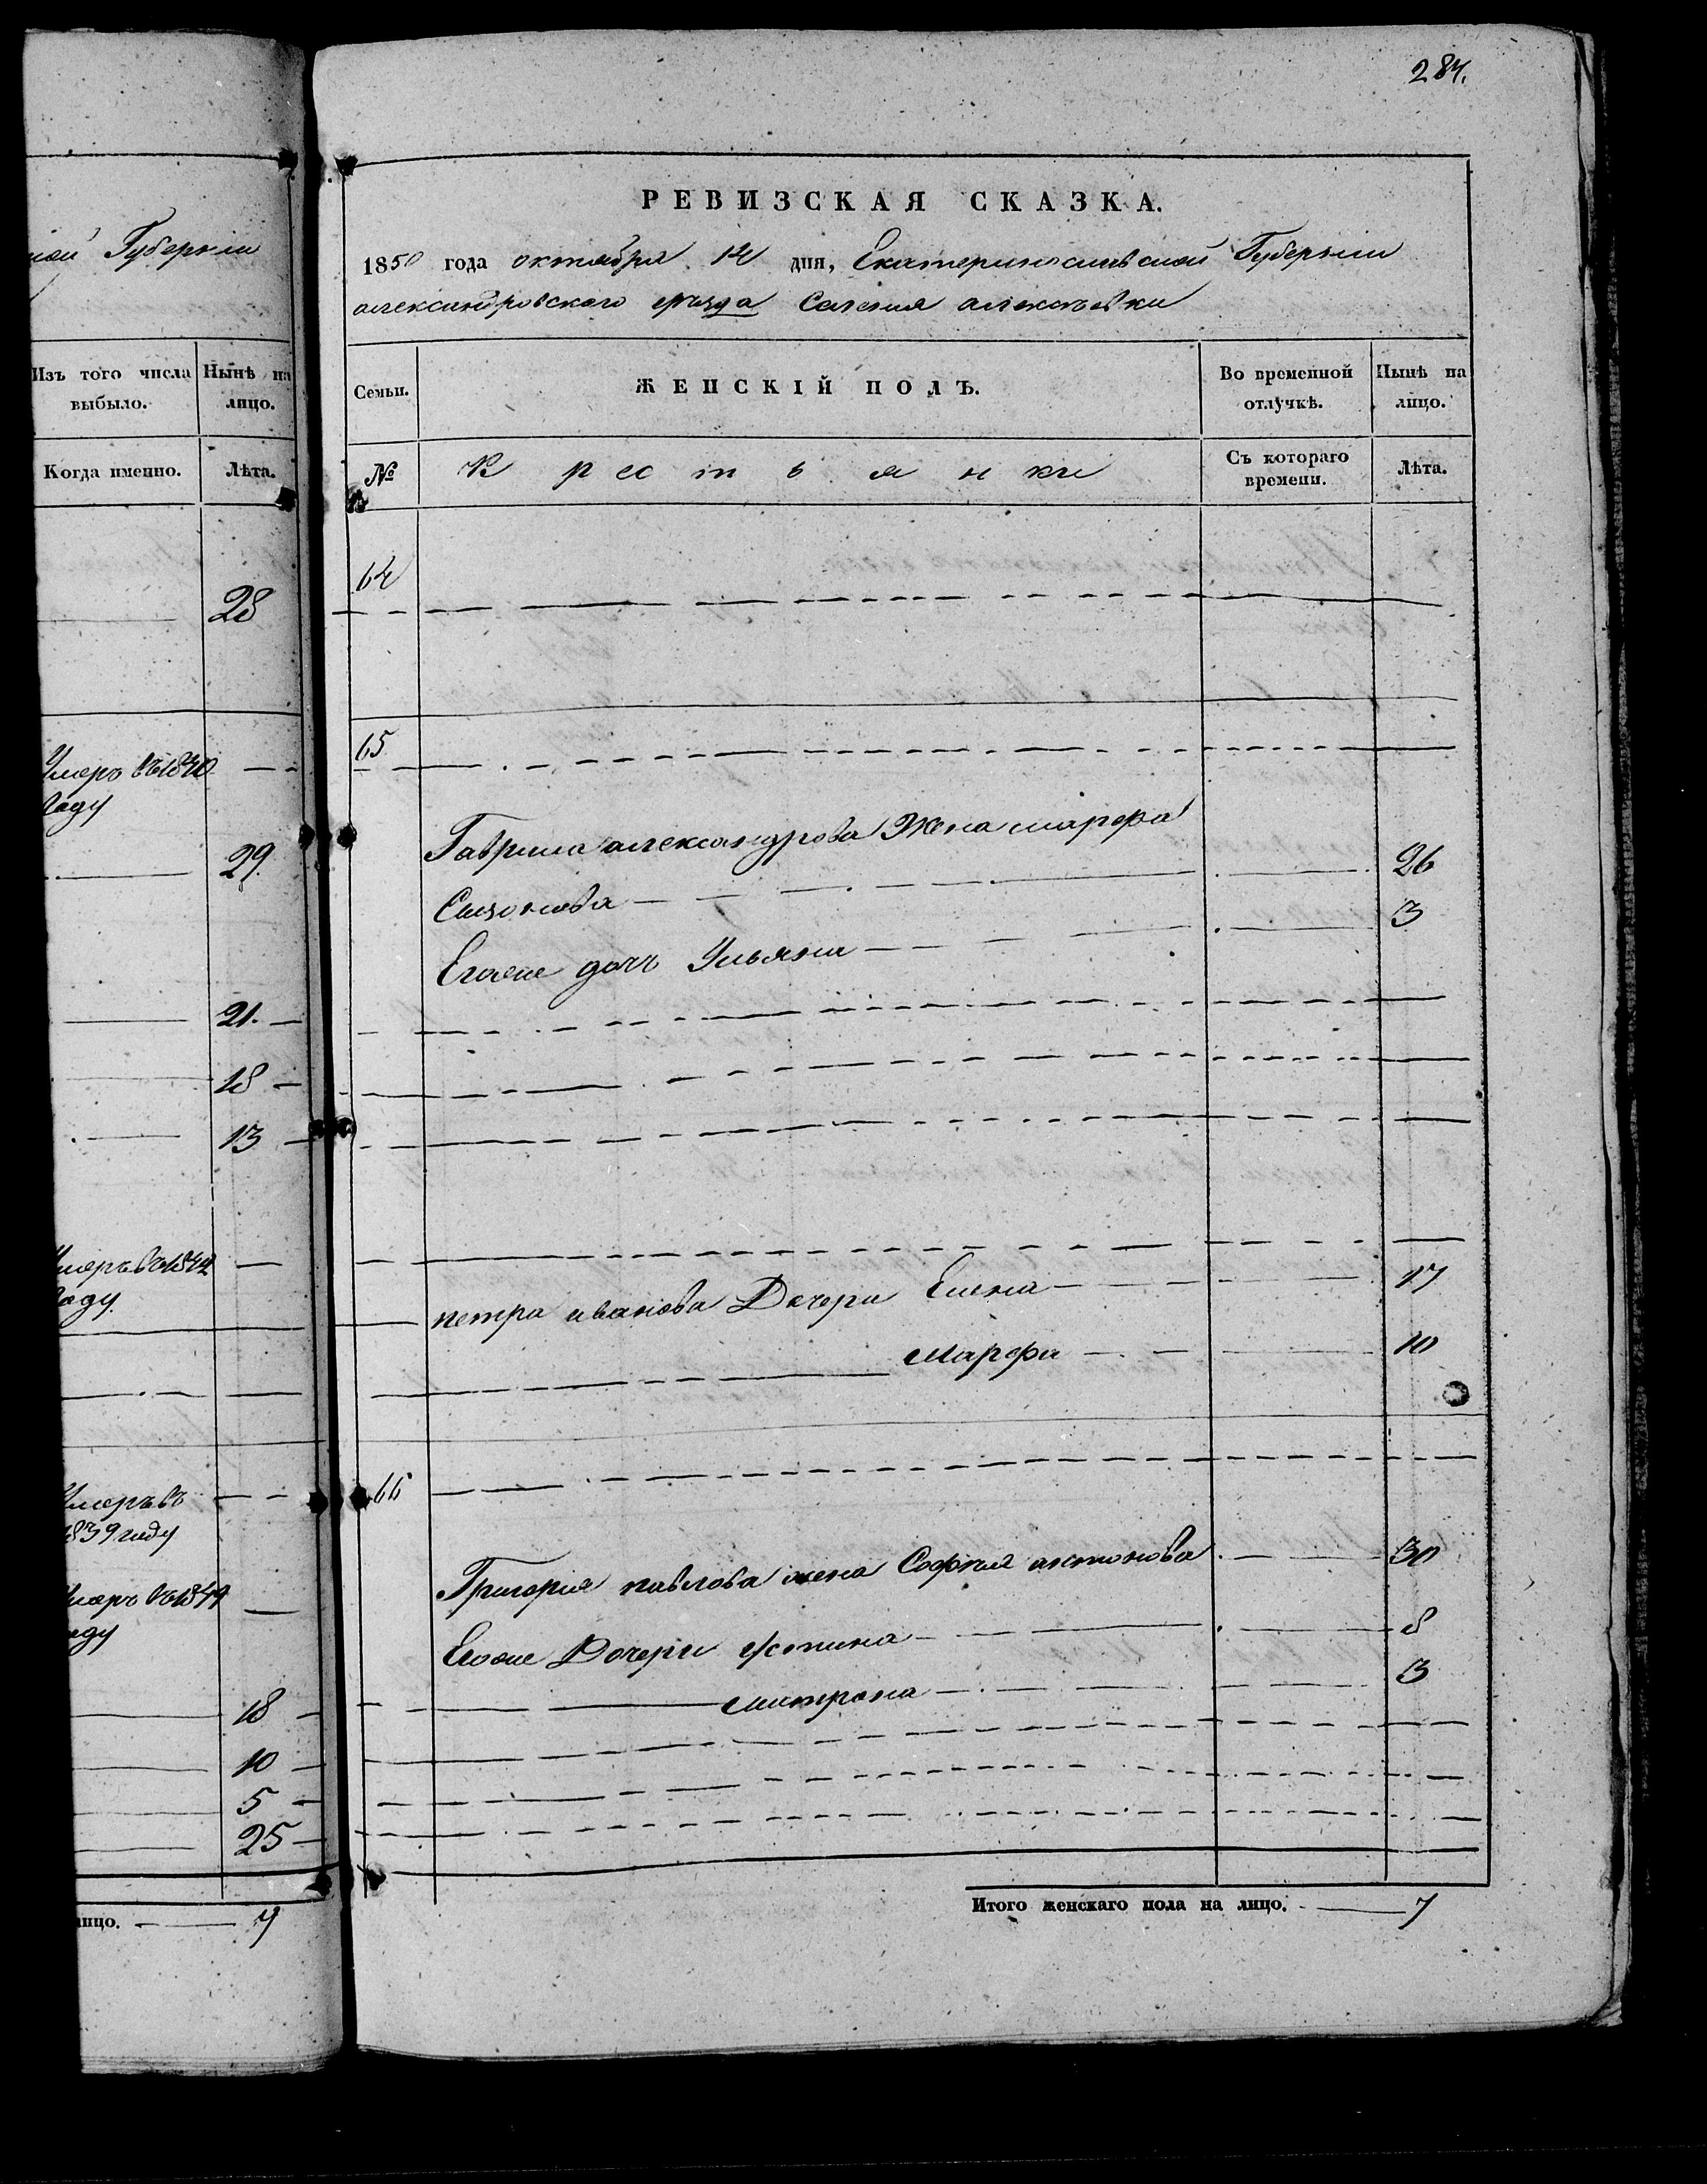 284.
ной Губерніи
Изъ того числа выбыло.
Ныне на лицо.
Когда именно.
Лѣта.
28
Умеръ въ 1840
году
29.
21.
18
13
Умеръ въ 1844
году
Умеръ въ
1839 году
Умеръ въ 1844
году
18
10
5
25
лицо. 7
РЕВИЗСКАЯ СКАЗКА.
1850 года октября 14 дня, Екатеринославской Губерніи
александровского уѣзда Селения алексѣевки
Семьи.
ЖЕНСКІЙ ПОЛЪ.
Во временной отлучкѣ.
Нынѣ на лицо.
№
Крестьянки
Съ котораго времени.
Лѣта.
64
65
Гаврила александрова Жена марфа
Сизонова 26
Егоже дочь Ульяна 3
петра иванова Дочери Елена 17
марфа 10
66
Григория павлова жена София антонова 30
Егоже Дочери устина 8
матрона 3
Итого женскаго пола на лицо. 7